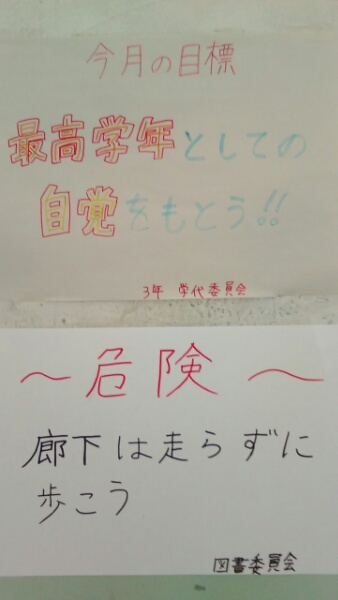 今月の目標
最高学年としての
自覚をもとう!!
3年 学代委員会
～危険～
廊下は走らずに
歩こう
図書委員会